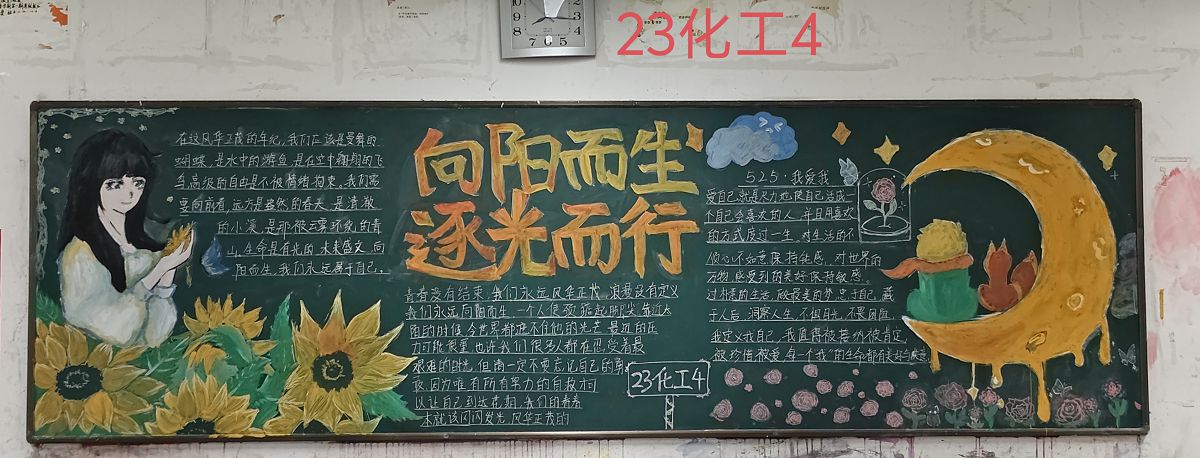 23化工4
在这风华正茂的年纪,我们应该是曼舞的
蝴蝶,是水中的游鱼,是在空中翱翔的飞
鸟,高级的自由是不被情绪拘束,我们需
要向前看,远方是盎然的春天,是清澈
的小溪,是那被云雾环绕的青
山,生命是有光的,未来盛大,向
阳而生,我们永远属于自己,
向阳而生
逐光而行
青春没有结束,我们永远风华正茂,浪漫没有定义
我们永远向阳而生,一个人
的时候,全世界都遮不住他的光芒,最近的压
力可能很重,也许我们很多人都在忍受着最
艰难的时光,但请一定不要忘记自己的
因为唯有所有努力的自救才可
以让自己到达花期,我们的青春
本就该闪闪发光,风华正茂的
23化工4
525·我爱我
爱自己,就是尽力地使自己活成一
个自己会喜欢的人,并且用喜欢
的方式度过一生,对生活的不
顺心不如意保持钝感,对世界的
万物,感受到的美好保持敏感。
过朴素的生活,做最美的梦,忠于自己,藏
于人后,洞察人生,不惧目光,不畏困难
我定义我自己,我值得被接纳被肯定
被珍惜被爱,每一个"我"的生命都有美好与